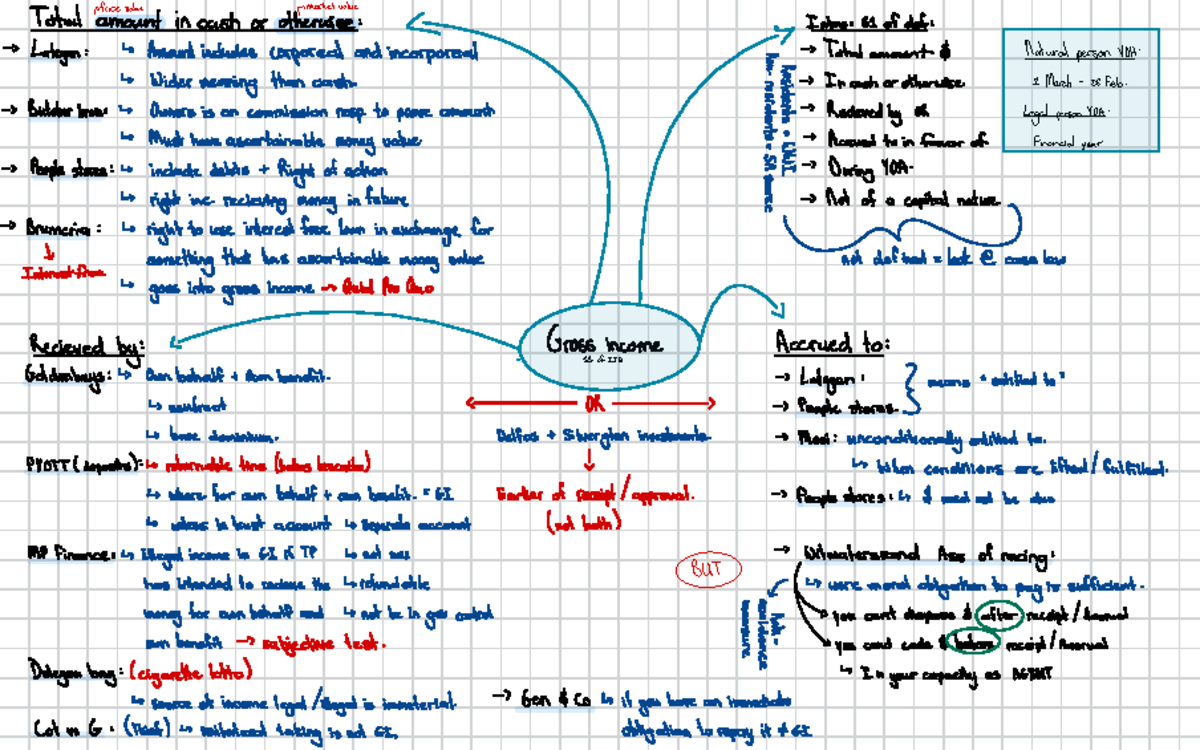 Total amount in cash or otherwise:
market value
→ Lategan: ↳ Amount includes corporeal and incorporeal
↳ Wider meaning than cash.
↳ Owners is on commission resp. to prove amount
↳ Must have ascertainable money value
→ People stores: ↳ include debts + Right of action
↳ right inc. recieving money in future
→ Brumeria: ↳ right to use interest free loan in exchange for
something that has ascertainable money value
Interest free
↳ goes into gross income → Quid Pro Quo
S1 of def:
→ Total amount $
→ In cash or otherwise
→ Recieved by OR
→ Accrued to in favor of
→ During YOA.
→ Not of a capital nature
not defined = look @ case law
Natural person YOA.
1 March - 28 Feb.
Legal person YOA.
Financial year
Gross income
Recieved by:
↳ Own behalf + Own benefit.
↳ contract
↳ bare dominium.
PYOTT (deposits): ↳ returnable tins
↳ where for own behalf + own benefit. = GI
↳ trust account ↳ separate account
MP Finance: ↳ Illegal income is GI if TP
has intended to recieve the ↳ refundable
money for own behalf and ↳ not be in
own benefit → subjective test.
(cigarette lotto)
↳ source of income legal/illegal is immaterial.
↳ unilateral taking is not GI.
OR
Delfos + Silverglen investments.
↓
Earlier of receipt/approval.
(not both)
BUT
→ Gen & Co ↳ if you have an immediate
obligation to repay it ≠ GI
Accrued to:
→ Lategan:
→ People stores.
means "entitled to"
→ Mooi: unconditionally entitled to.
↳ When conditions are lifted/fulfilled.
→ People stores: ↳ $ need not be due
→ Witwatersrand Ass of racing:
↳ mere moral obligation to pay is sufficient.
you cant dispose $ after receipt/Accrual
you cand cede $ before receipt/Accrual
↳ In your capacity as AGENT